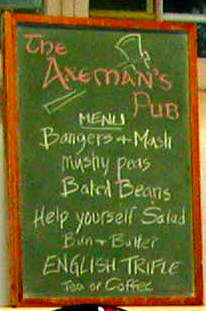 The
Axeman's
Pub
MENU
Bangers + Mash
mushy peas
Bak'd Beans
Help yourself Salad
Bun + Butter
ENGLISH TRIFLE
Tea or Coffee